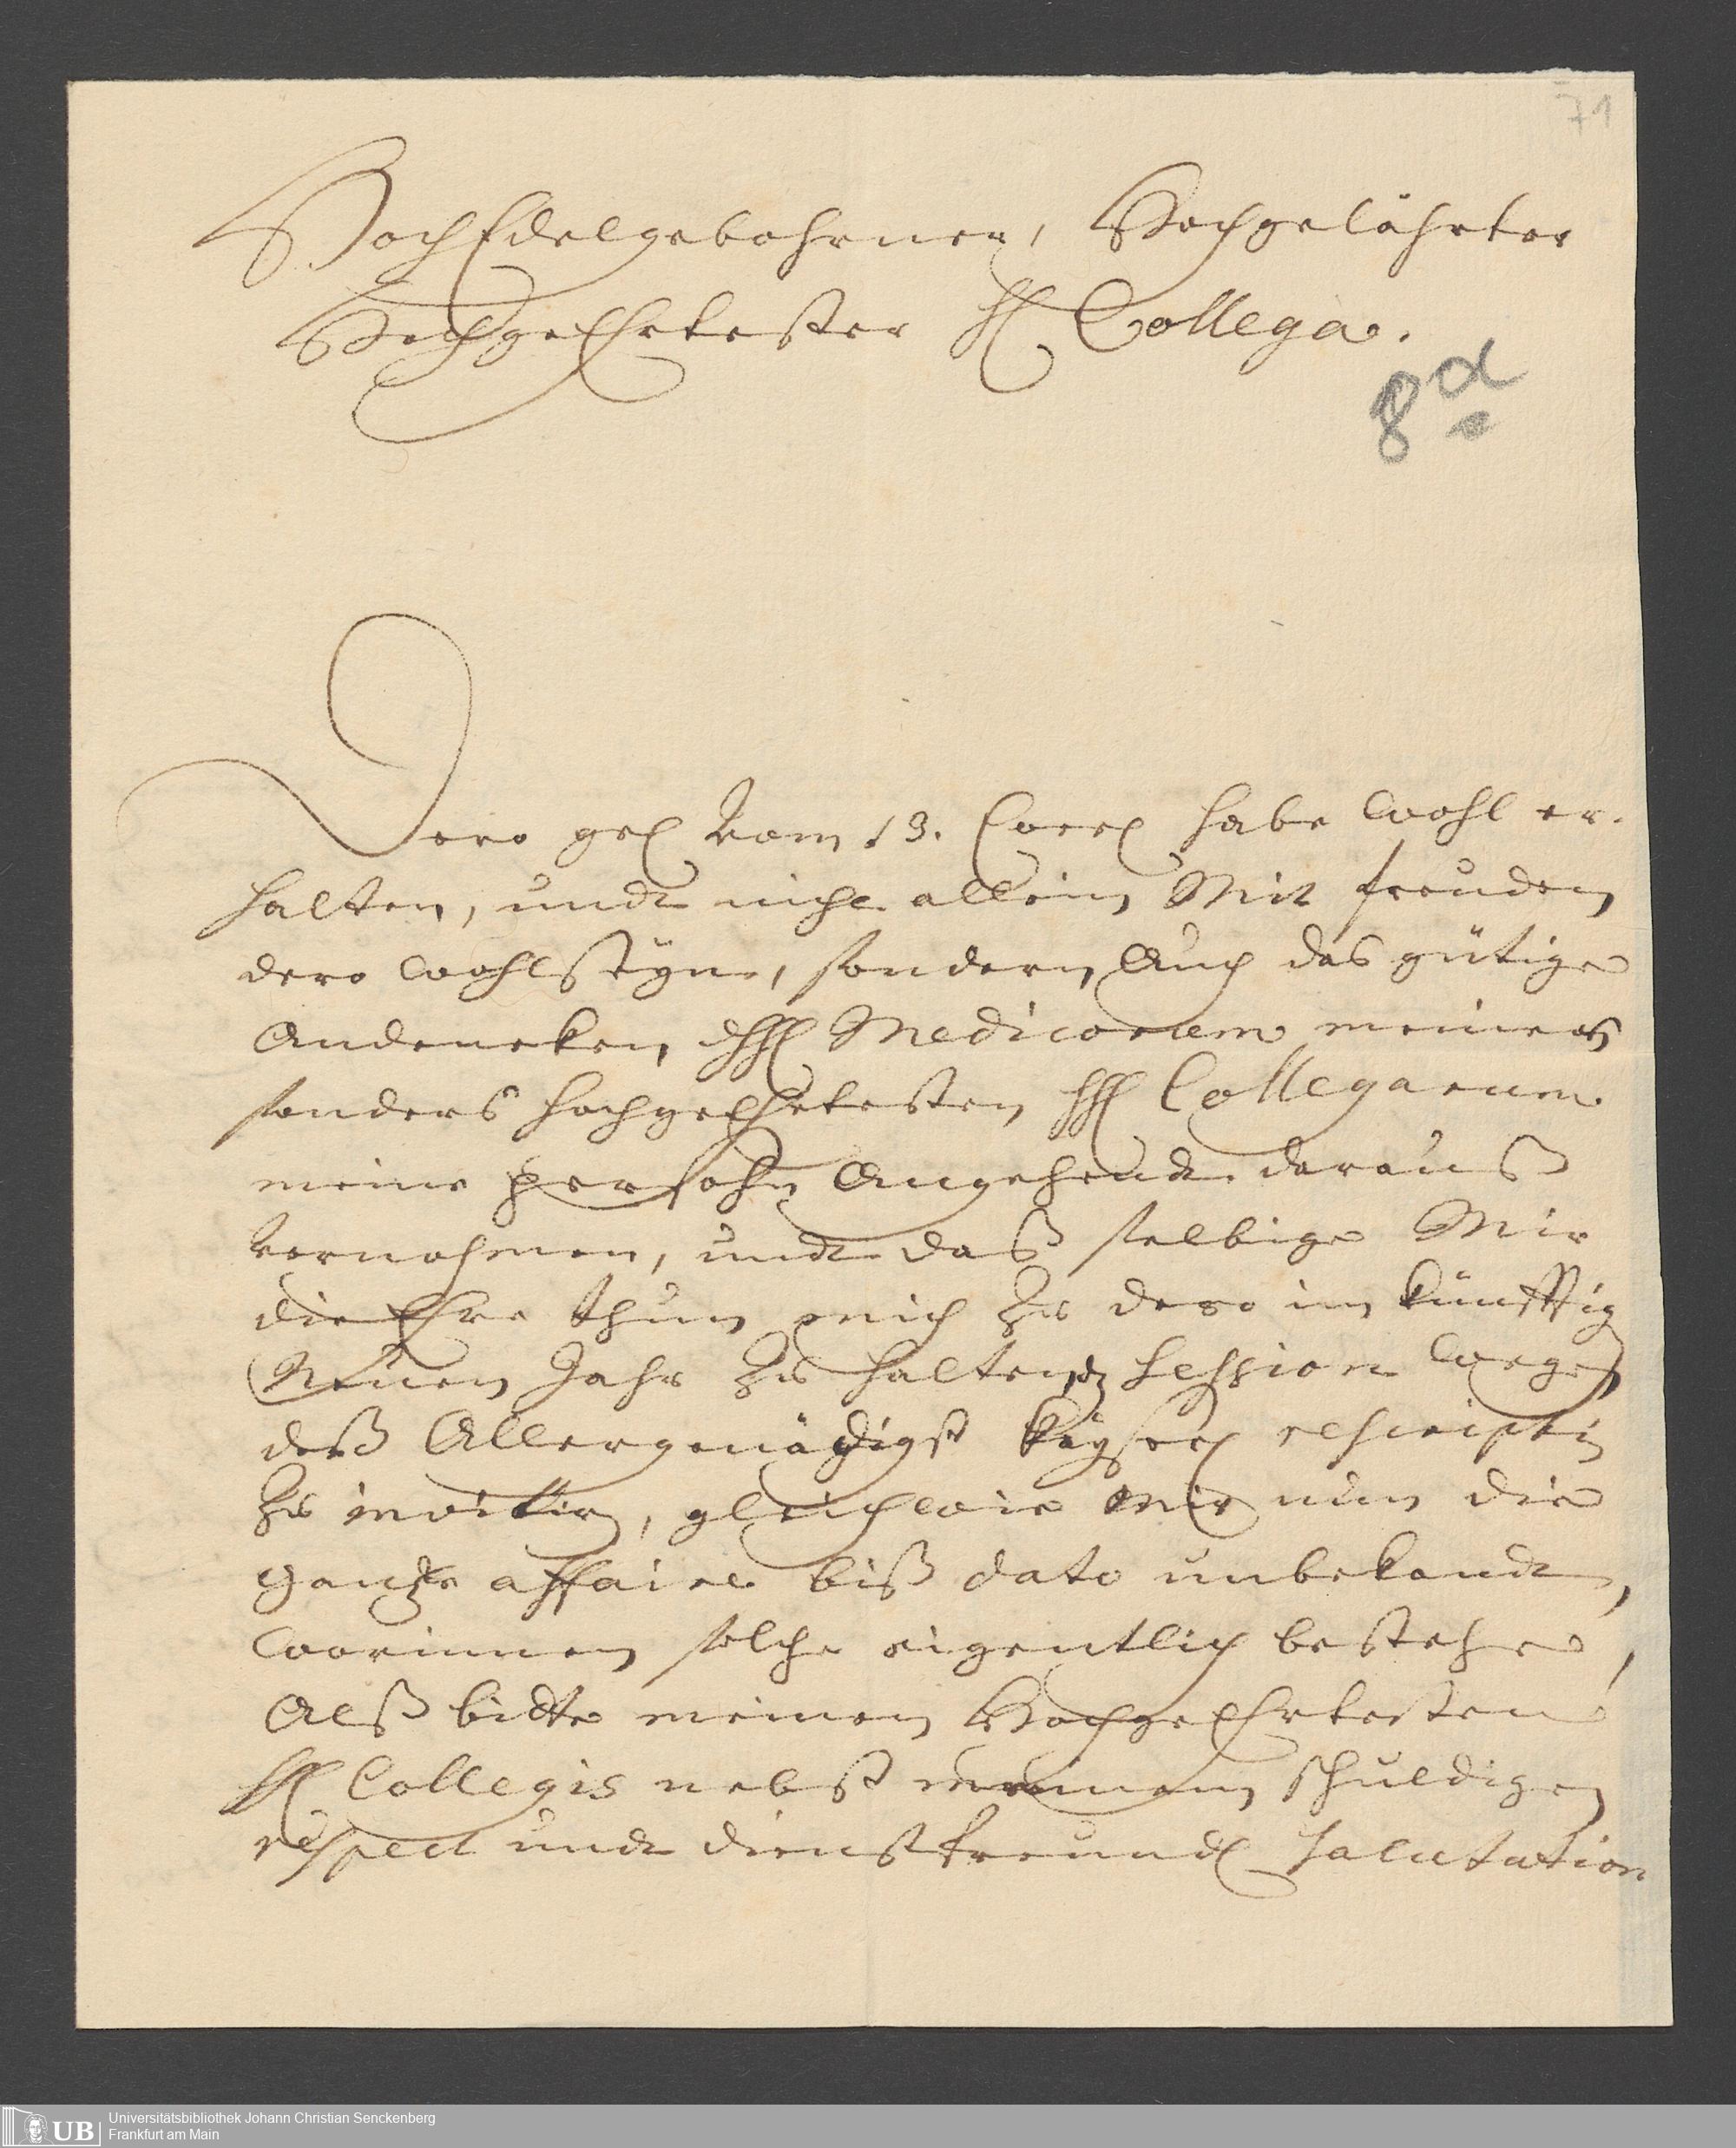 71
HochEdelgebohrner, Hochgelährter
HochgeEhrtester H Collega.
8 α
Dero gel vom 13. Correl habe wohl er-
halten, undt nicht allein Mit freuden
dero wohlseÿn, sondern Auch das gütige
Andencken, dHH Medicorum meiner
sonders hochgeEhrtesten HH Collegarum
meine persohn Angehendt darauß
vernohmen, undt daß selbige Mir
die Ehre thun mich zu dero im künfftig
Neuen Jahr zu haltend Session wegen
deß Allergenädigst kaÿserl rescripti
zu invitirn, gleichwie mir nun die
gantze affaire biß dato unbekandt,
worinnen solche eigentlich bestehe,
Alß bitte meinen HochgeEhrtesten
HH Collegis nebst meinem schuldigen
respect undt dienstfreundl Salutation
UB Universitätsbibliothek Johann Christian Senckenberg
Frankfurt am Main